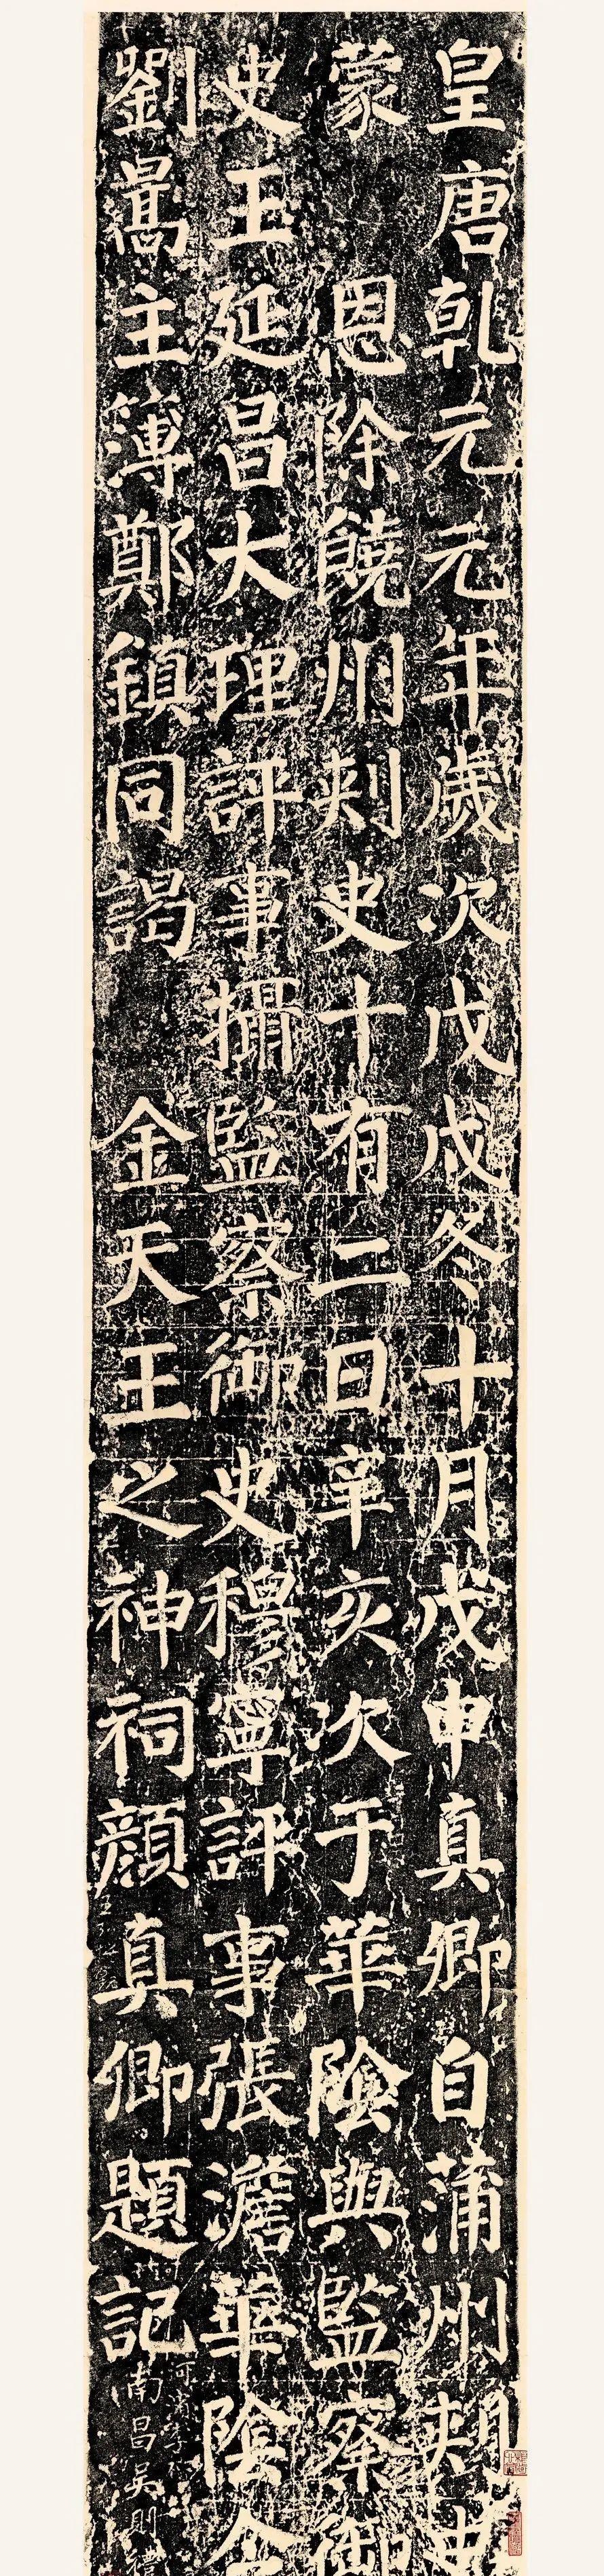 皇唐乾元元年歲次戊戌冬十月戊申真卿自蒲州刾史
蒙恩除饒州刾史十有二日辛亥次于華陰與監察御
史王延昌大理評事攝監察御史穆寧評事張澹華陰令
劉暠主簿鄭鎮同謁金天王之神祠顏真卿題記
南昌吳則禮